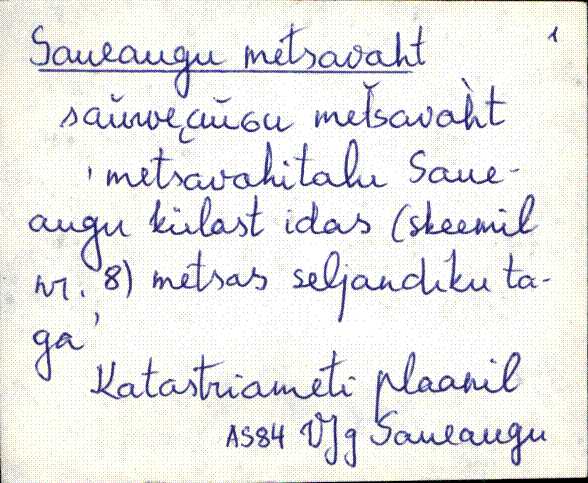 Saueaugu metsavaht 1
metsavaht
'metsavahitalu Saue-
augu külast idas (skeemil
nr. 8) metsas seljandiku ta-
ga'
Katastriameti plaanil
AS84 VJg Saueaugu